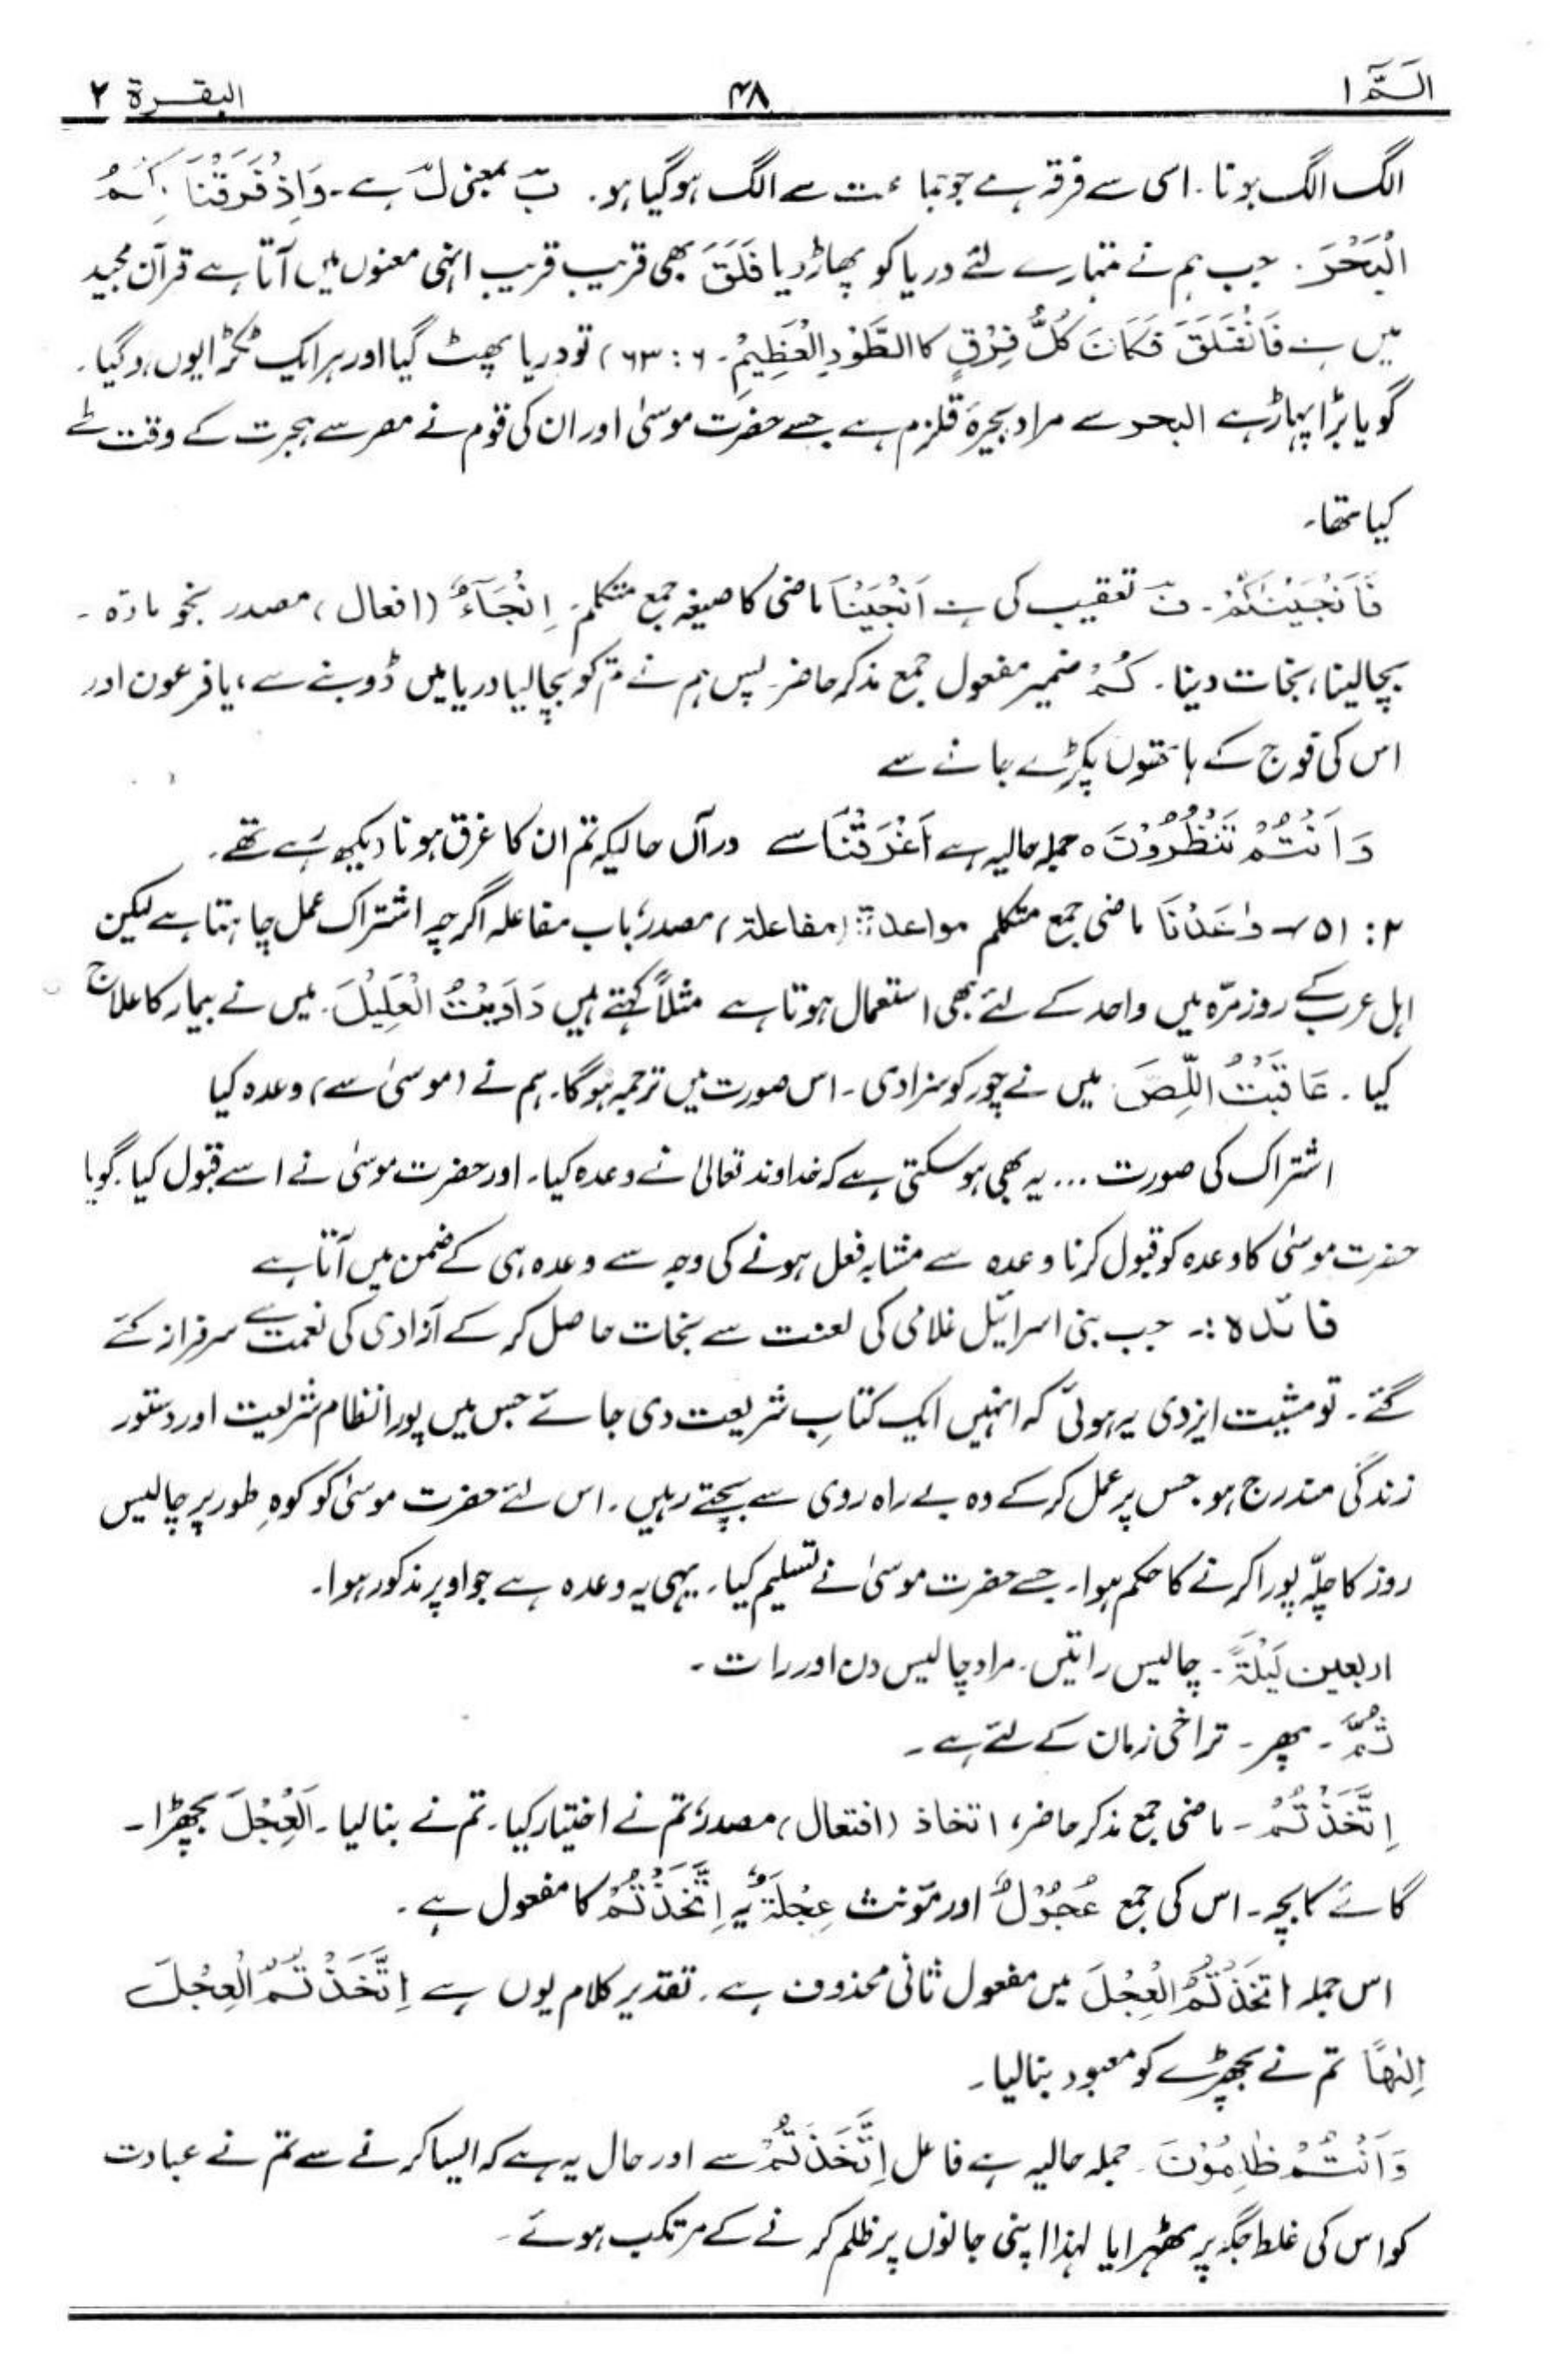 الٓمّٓ ۱ ۴۸ البقرة ۲
الگ الگ ہونا۔ اسی سے فرقہ ہے جو جماعت سے الگ ہو گیا ہو۔ بَ بمعنی لَ ہے۔ وَاِذْ فَرَقْنَا بِكُمُ
الْبَحْرَ۔ جب ہم نے تمہارے لئے دریا کو پھاڑ دیا فَلَقَ بھی قریب قریب انہی معنوں میں آتا ہے قرآن مجید
میں ہے فَانْفَلَقَ فَكَانَ كُلُّ فِرْقٍ كَالطَّوْدِ الْعَظِيْمِ۔ ۶ : ۶۳) تو دریا پھٹ گیا اور ہر ایک ٹکڑا یوں ہو گیا۔
گویا بڑا پہاڑ ہے البحر سے مراد بحیرۂ قلزم ہے جسے حضرت موسیٰ اور ان کی قوم نے مصر سے ہجرت کے وقت طے
کیا تھا۔
فَاَنْجَيْنٰكُمْ۔ فَ تعقیب کی ہے اَنْجَيْنَا ماضی کا صیغہ جمع متکلم۔ اِنْجَاءٌ (افعال) مصدر نجو مادہ۔
بچا لینا، نجات دینا۔ كُمْ ضمیر مفعول جمع مذکر حاضر۔ پس ہم نے تم کو بچا لیا دریا میں ڈوبنے سے، یا فرعون اور
اس کی فوج کے ہاتھوں پکڑے جانے سے
وَاَنْتُمْ تَنْظُرُوْنَ ہ جملہ حالیہ ہے اَغْرَقْنَا سے درآں حالیکہ تم ان کا غرق ہونا دیکھ رہے تھے۔
۲ : ۵۱ = وٰعَدْنَا ماضی جمع متکلم مواعدۃ (مفاعلۃ) مصدر، باب مفاعلہ اگرچہ اشتراک عمل چاہتا ہے لیکن
اہل عرب کے روزمرّہ میں واحد کے لئے بھی استعمال ہوتا ہے مثلاً کہتے ہیں دَاوَيْتُ الْعَلِيْلَ۔ میں نے بیمار کا علاج
کیا۔ عَاقَبْتُ اللِّصَّ۔ میں نے چور کو سزا دی۔ اس صورت میں ترجمہ ہوگا۔ ہم نے (موسیٰ سے) وعدہ کیا
اشتراک کی صورت ... یہ بھی ہو سکتی ہے کہ خداوند تعالیٰ نے وعدہ کیا۔ اور حضرت موسیٰ نے اسے قبول کیا۔ گویا
حضرت موسیٰ کا وعدہ کو قبول کرنا وعدہ سے مشابہ فعل ہونے کی وجہ سے وعدہ ہی کے ضمن میں آتا ہے
فائدہ :۔ جب بنی اسرائیل غلامی کی لعنت سے نجات حاصل کر کے آزادی کی نعمت سے سرفراز کئے
گئے۔ تو مشیت ایزدی یہ ہوئی کہ انہیں ایک کتابِ شریعت دی جائے جس میں پورا نظام شریعت اور دستور
زندگی مندرج ہو۔ جس پر عمل کر کے وہ بے راہ روی سے بچتے رہیں۔ اس لئے حضرت موسیٰ کو کوہِ طور پر چالیس
روز کا چلّہ پورا کرنے کا حکم ہوا۔ جسے حضرت موسیٰ نے تسلیم کیا۔ یہی یہ وعدہ ہے جو اوپر مذکور ہوا۔
اربعین لَيْلَةً۔ چالیس راتیں۔ مراد چالیس دن اور رات۔
ثُمَّ۔ پھر۔ تراخی زمان کے لئے ہے۔
اِتَّخَذْتُمْ۔ ماضی جمع مذکر حاضر، اتخاذ (افتعال) مصدر، تم نے اختیار کیا۔ تم نے بنا لیا۔ اَلْعِجْلَ بچھڑا۔
گائے کا بچہ۔ اس کی جمع عُجُوْلٌ اور مؤنث عِجْلَةٌ یہ اِتَّخَذْتُمْ کا مفعول ہے۔
اس جملہ اتَّخَذْتُمُ الْعِجْلَ میں مفعول ثانی محذوف ہے۔ تقدیر کلام یوں ہے اِتَّخَذْتُمُ الْعِجْلَ
اِلٰهًا تم نے بچھڑے کو معبود بنا لیا۔
وَاَنْتُمْ ظٰلِمُوْنَ۔ جملہ حالیہ ہے فاعل اِتَّخَذْتُمْ سے اور حال یہ ہے کہ ایسا کرنے سے تم نے عبادت
کو اس کی غلط جگہ پر ٹھہرایا لہٰذا اپنی جانوں پر ظلم کرنے کے مرتکب ہوئے۔